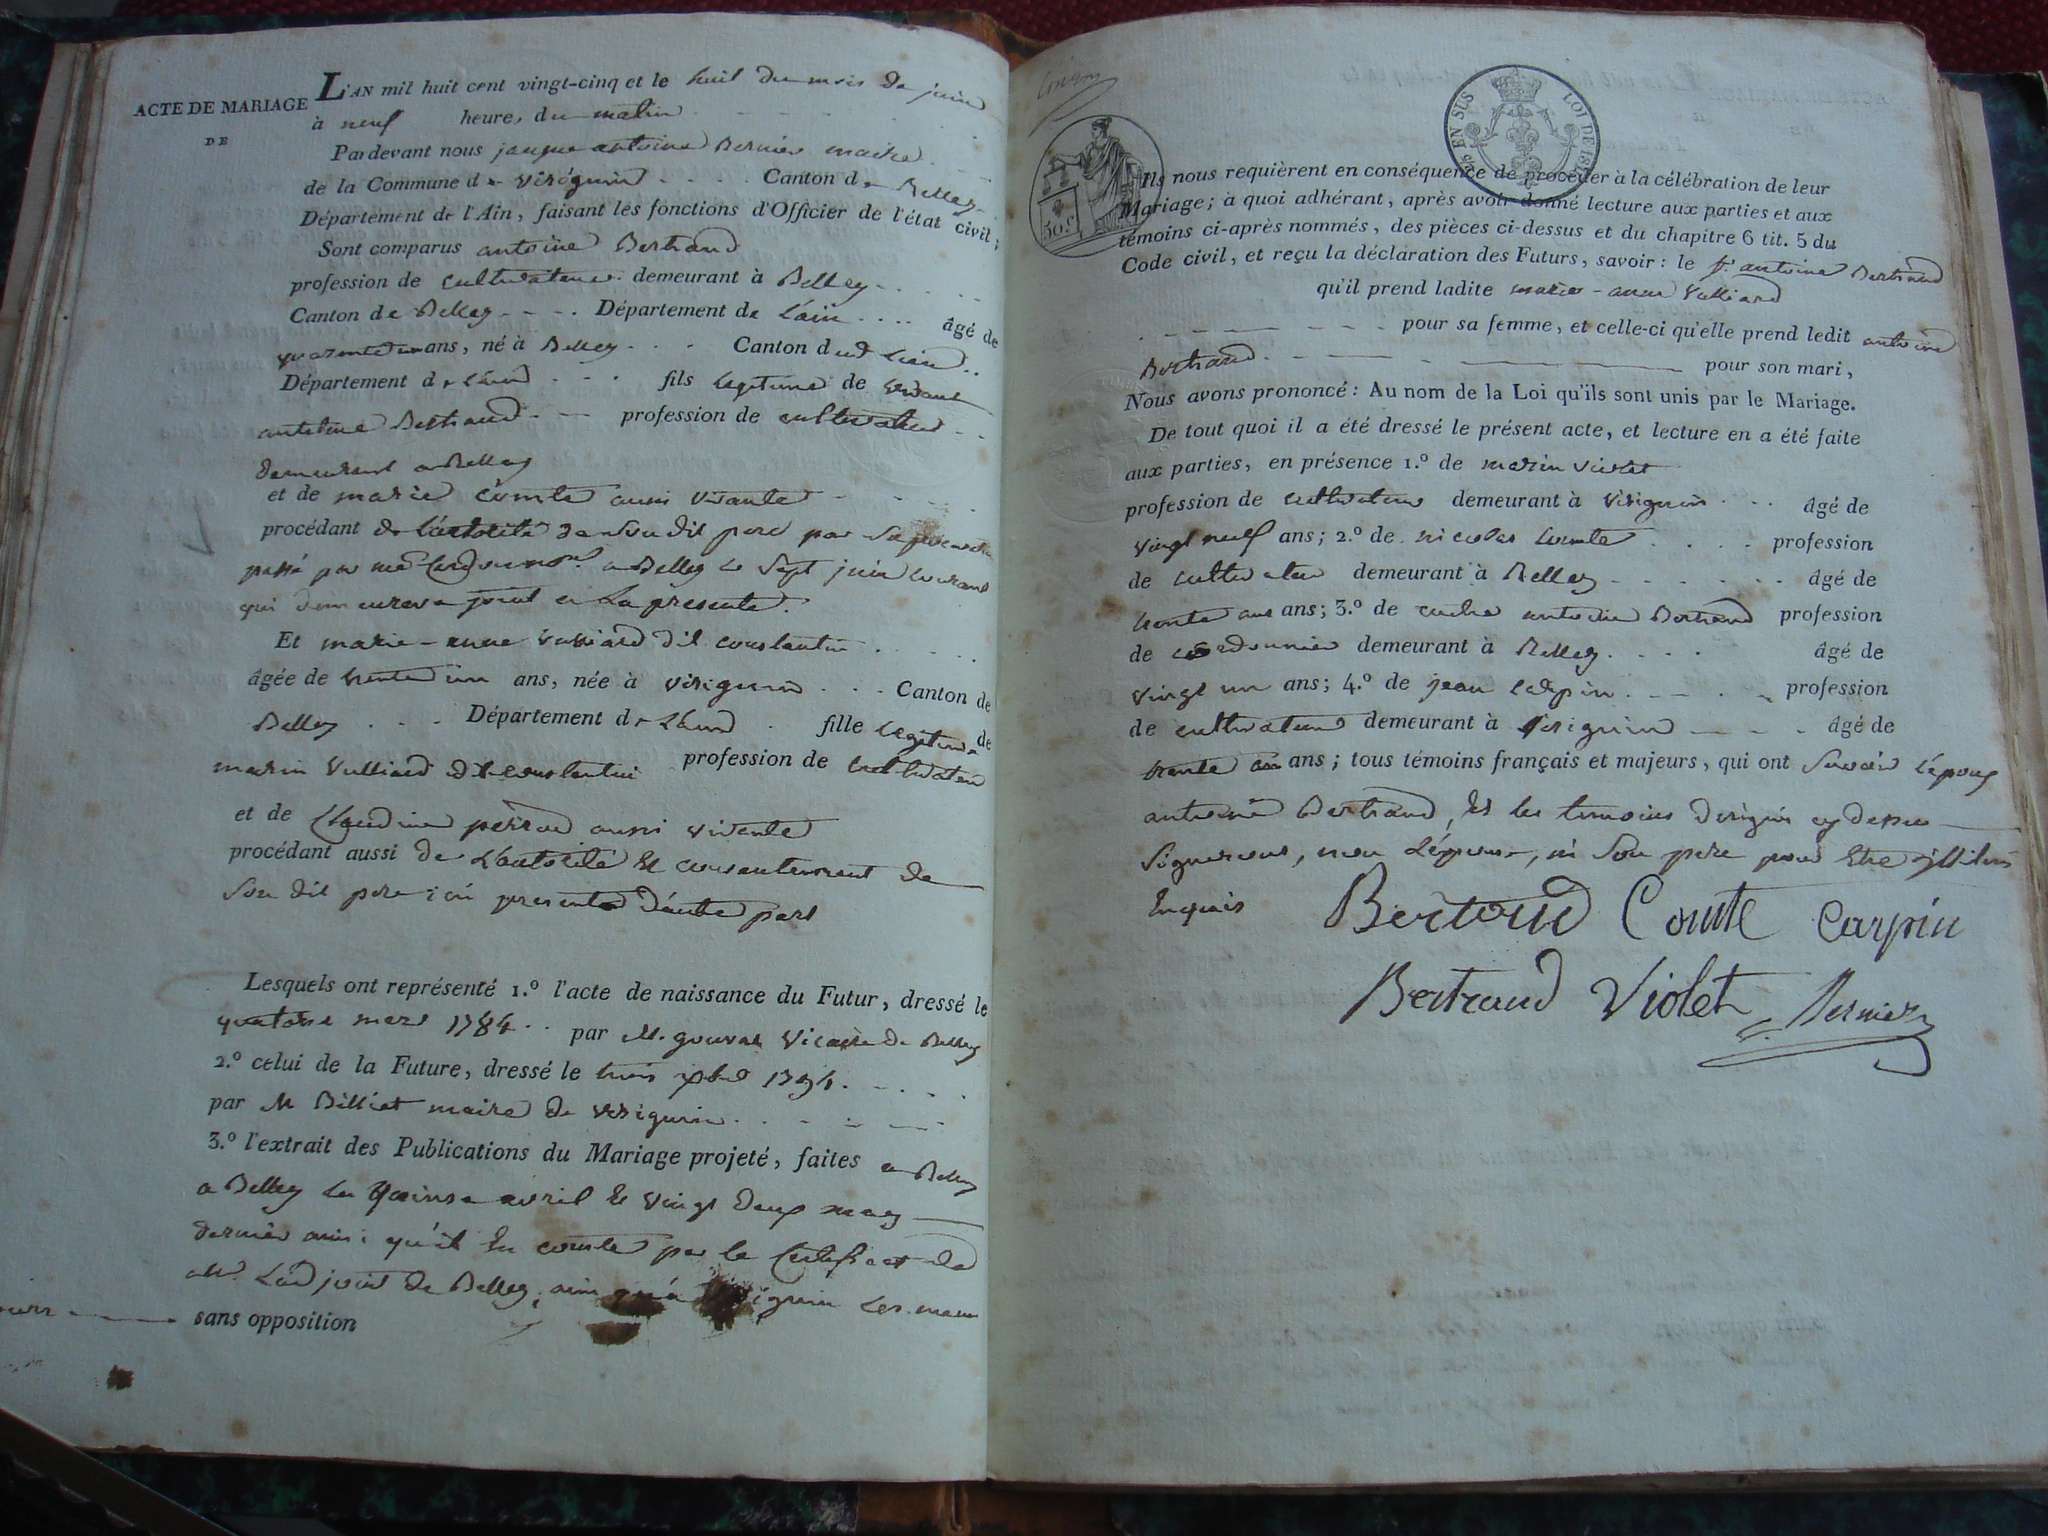 ACTE DE MARIAGE
DE
L'AN mil huit cent vingt-cinq et le huit du mois de juin
à neuf heures du matin
Pardevant nous jaque antoine Bernier maire
de la Commune de virignin Canton de Belley
Département de l'Ain, faisant les fonctions d'Officier de l'état civil;
Sont comparus antoine Bertrand
profession de cultivateur demeurant à Belley
Canton de Belley Département de L'ain âgé de
ans, né à Belley Canton dud Lieu
Département de L'ain fils legitime de vivant
antoine Bertrand profession de cultivateur
demeurant a Belley
et de marie comte aussi vivante
procédant de L'autorité de son dit pere par
passé par me a Belley Le sept juin courant
qui demeurera joint a La presente.
Et marie-anne vulliard dit constantin
âgée de trente un ans, née à virignin Canton de
Belley Département de L'ain fille legitime de
marin Vulliard dit constantin profession de cultivateur
et de Claudine perrod aussi vivente
procédant aussi de L'autorité et consentement de
son dit pere ici present d'autre part
Lesquels ont représenté 1.º l'acte de naissance du Futur, dressé le
quatorse mars 1784 par M. Vicaire de Belley
2.º celui de la Future, dressé le trois 1794
par M Billiet maire de virignin
3.º l'extrait des Publications du Mariage projeté, faites a Belley
a Belley Les quinse avril et vingt deux may
dernier ainsi qu'il En comte par le Certificat de
mr L'adjoint de Belley, ainsi qu'a virignin Les memes
jours sans opposition
EN SUS LOI DE
50.c
Ils nous requièrent en conséquence de procéder à la célébration de leur
Mariage; à quoi adhérant, après avoir donné lecture aux parties et aux
témoins ci-après nommés, des pièces ci-dessus et du chapitre 6 tit. 5 du
Code civil, et reçu la déclaration des Futurs, savoir: le sr antoine Bertrand
qu'il prend ladite marie-anne Vulliard
pour sa femme, et celle-ci qu'elle prend ledit antoine
Bertrand pour son mari,
Nous avons prononcé: Au nom de la Loi qu'ils sont unis par le Mariage.
De tout quoi il a été dressé le présent acte, et lecture en a été faite
aux parties, en présence 1.º de marin violet
profession de cultivateur demeurant à virignin âgé de
vingt neuf ans; 2.º de nicolas comte profession
de cultivateur demeurant à Belley âgé de
trente ans; 3.º de antoine Bertrand profession
de cordonnier demeurant à Belley âgé de
vingt un ans; 4.º de jean carpin profession
de cultivateur demeurant à virignin âgé de
trente ans; tous témoins français et majeurs, qui ont savoir L'epoux
antoine Bertrand, et les temoins designés cy dessus
signeront, non L'épouse, ni son pere pour Etre illitéré
Enquis
Bertrand Comte Carpin
Bertrand Violet Bernier